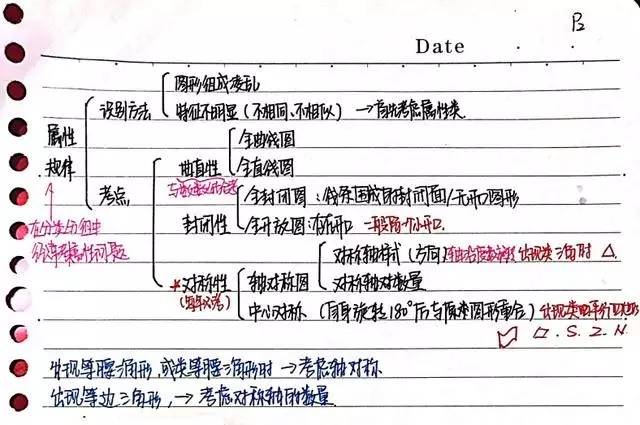 P2
Date
图形组成凌乱
识别方法
特征不明显（不相同、不相似）→首先考虑属性类
属性
规律
全曲线图
曲直性
全直线图
考点
全封闭图：线条围成的封闭面/无开口图形
封闭性
全开放图：有开口 一般留个小开口.
在分类分组中
对称轴样式（方向） 出现类三角时 △.
轴对称图
*对称性
对称轴对数量
(每年必考)
中心对称（自身旋转180°后与原来图形重合）出现类平行四边形
▱.S.Z.N.
出现等腰三角形，或类等腰三角形时→考虑轴对称
出现等边三角形，→考虑对称轴的数量